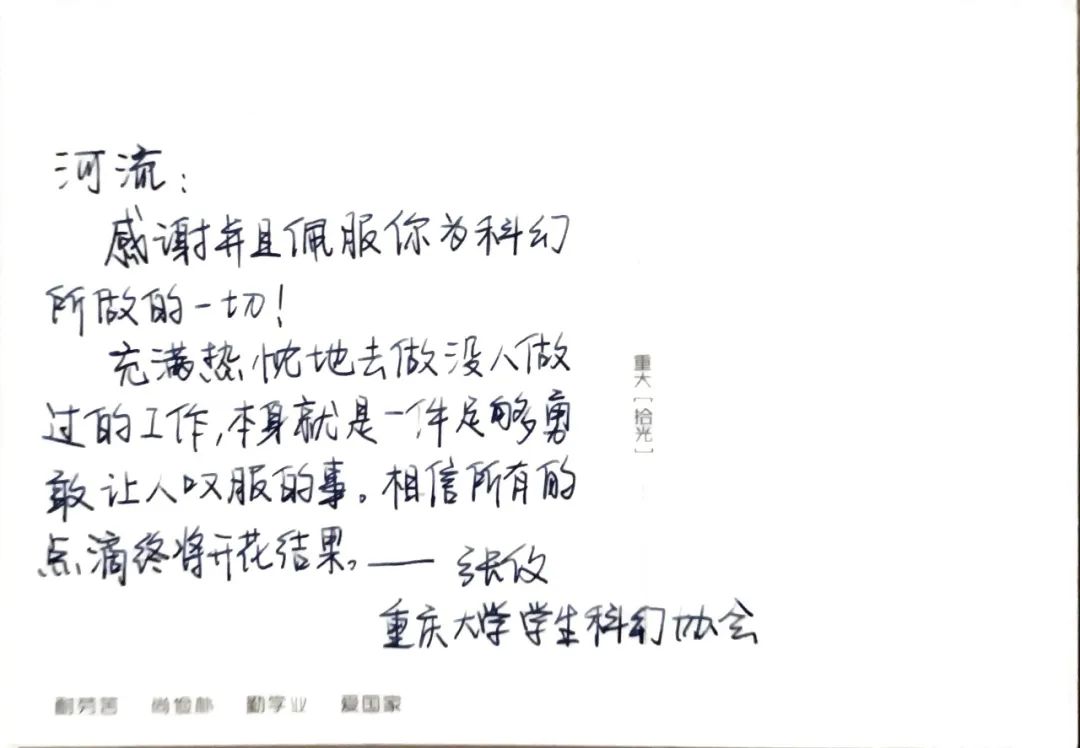 河流：
感谢并且佩服你为科幻
所做的一切！
充满热忱地去做没人做
过的工作,本身就是一件足够勇
敢让人叹服的事。相信所有的
点滴终将开花结果。—— 张攸
重庆大学学生科幻协会
重大[拾光]
耐劳苦 尚俭朴 勤学业 爱国家